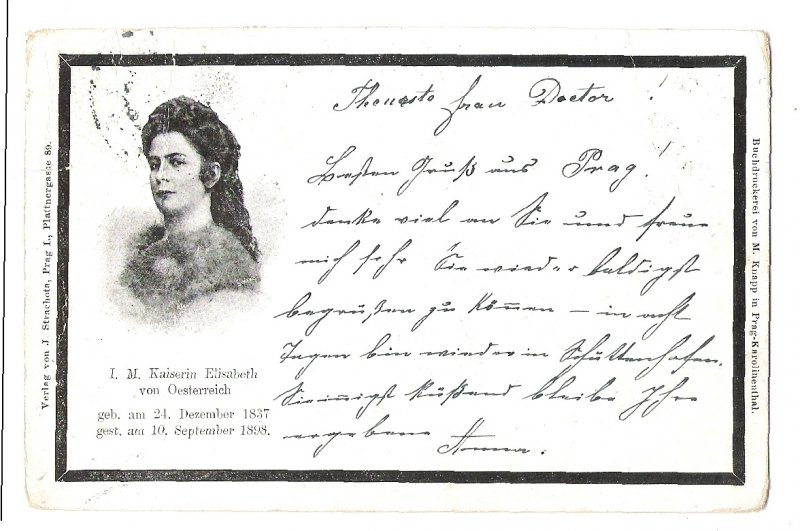 Theuerste Frau Doctor!
Besten Gruß aus Prag!
denke viel an Sie und freue
mich sehr Sie wieder baldigst
begrüßen zu können – in acht
Tagen bin wieder in Schüttenhofen.
Sie innigst küßend bleibe Ihre
ergebene Anna.
I. M. Kaiserin Elisabeth
von Oesterreich
geb. am 24. Dezember 1837
gest. am 10. September 1898.
Verlag von J. Strachota, Prag I., Plattnergasse 89.
Buchdruckerei von M. Knapp in Prag-Karolinenthal.